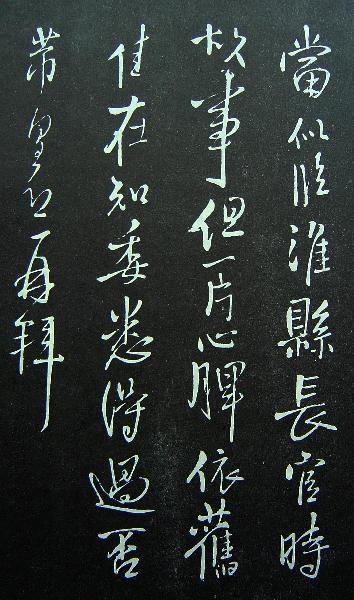 當似臨淮縣長官時
故事但一片心脾依舊
佳在知委悉得過否
芾皇恐再拜